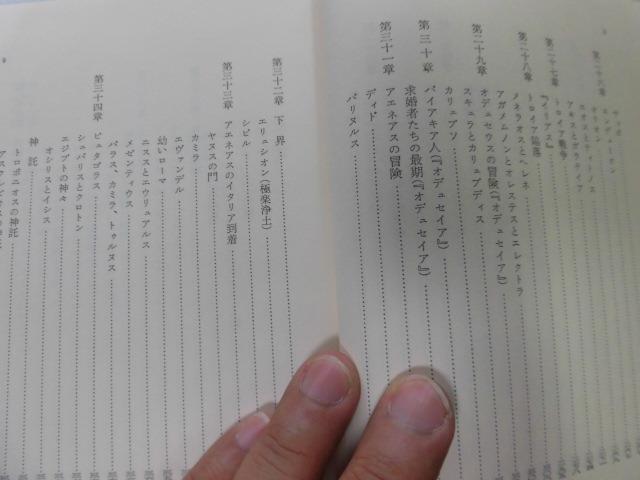 第二十六章
エンデュミオン
オリオン
エオスとティトノス
アキスとガラテイア
第二十七章
トロイア戦争
『イリアス』
第二十八章
トロイア陥落
メネラオスとヘレネ
アガメムノンとオレステスとエレクトラ
第二十九章
オデュセウスの冒険(『オデュセイア』)
スキュラとカリュブディス
カリュプソ
第三十章
パイアキア人(『オデュセイア』)
求婚者たちの最期(『オデュセイア』)
第三十一章
アエネアスの冒険
ディド
パリヌルス
第三十二章 下界
エリュシオン(極楽浄土)
シビル
第三十三章
アエネアスのイタリア到着
ヤヌスの門
カミラ
エヴァンデル
幼いローマ
ニススとエウリュアルス
メゼンティウス
パラス、カミラ、トゥルヌス
第三十四章
ピュタゴラス
シュバリスとクロトン
エジプトの神々
オシリスとイシス
神託
トロポニオスの神託